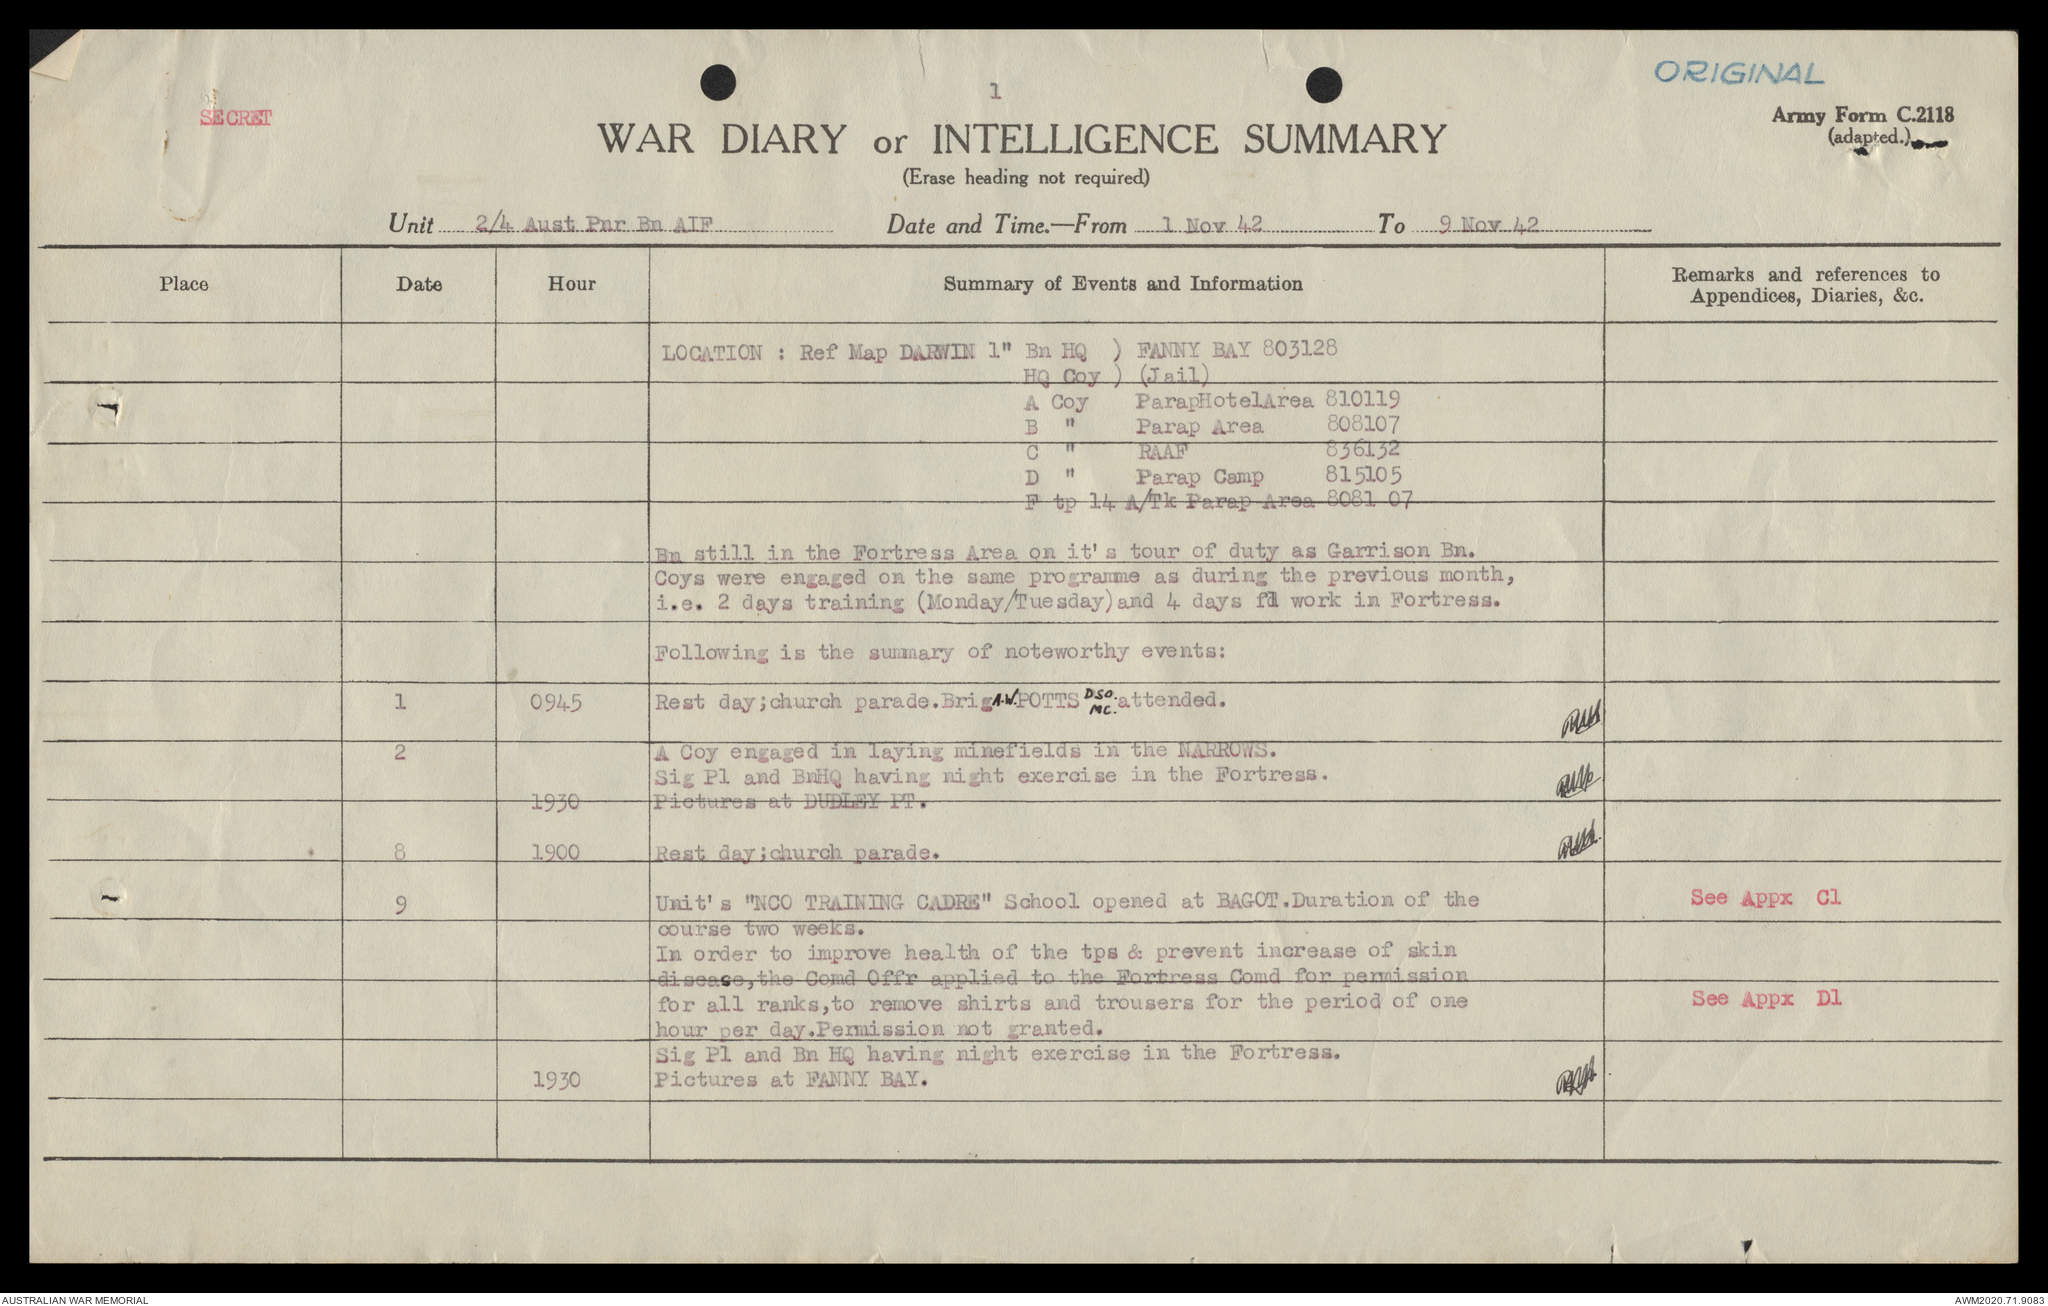 ORIGINAL
1
SECRET
Army Form C.2118
(adapted.)
WAR DIARY or INTELLIGENCE SUMMARY
(Erase heading not required)
Unit 2/4 Aust Pnr Bn AIF Date and Time.—From 1 Nov 42 To 9 Nov 42
Place Date Hour Summary of Events and Information Remarks and references to
Appendices, Diaries, &c.
LOCATION : Ref Map DARWIN 1" Bn HQ ) FANNY BAY 803128
HQ Coy ) (Jail)
A Coy ParapHotelArea 810119
B " Parap Area 808107
C " RAAF 836132
D " Parap Camp 815105
F tp 14 A/Tk Parap Area 8081 07
Bn still in the Fortress Area on it's tour of duty as Garrison Bn.
Coys were engaged on the same programme as during the previous month,
i.e. 2 days training (Monday/Tuesday)and 4 days fd work in Fortress.
Following is the summary of noteworthy events:
1 0945 Rest day;church parade.Brig A.W. POTTS DSO. MC. attended.
2 A Coy engaged in laying minefields in the NARROWS.
Sig Pl and BnHQ having night exercise in the Fortress.
1930 Pictures at DUDLEY PT.
8 1900 Rest day;church parade.
9 Unit's "NCO TRAINING CADRE" School opened at BAGOT.Duration of the See Appx C1
course two weeks.
In order to improve health of the tps & prevent increase of skin
disease,the Comd Offr applied to the Fortress Comd for permission
for all ranks,to remove shirts and trousers for the period of one See Appx D1
hour per day.Permission not granted.
Sig Pl and Bn HQ having night exercise in the Fortress.
1930 Pictures at FANNY BAY.
AUSTRALIAN WAR MEMORIAL AWM2020.71.9083